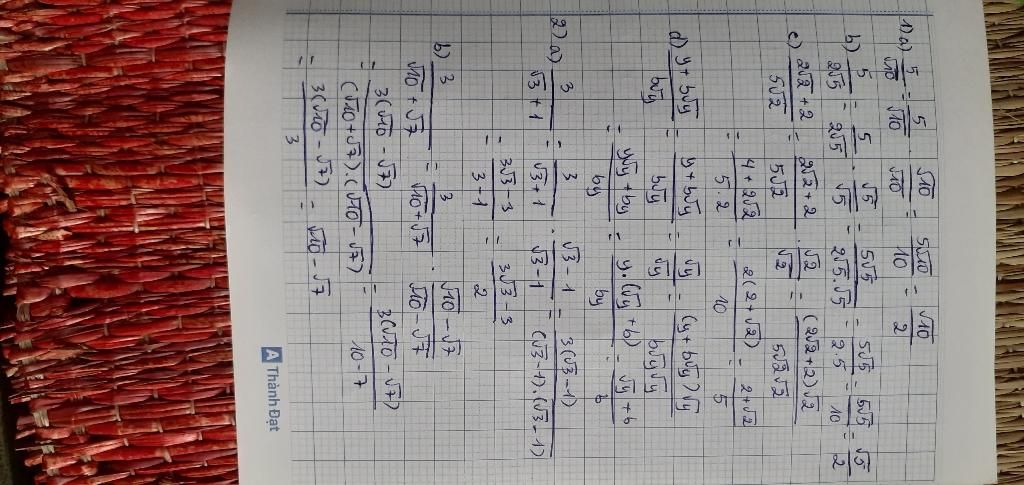 1) a) 5/√10 = 5/√10 . √10/√10 = 5√10/10 = √10/2
b) 5/2√5 = 5/2√5 . √5/√5 = 5√5/2√5.√5 = 5√5/2.5 = 5√5/10 = √5/2
c) 2√2+2/5√2 = 2√2+2/5√2 . √2/√2 = (2√2+2)√2/5√2√2
= 4+2√2/5.2 = 2(2+√2)/10 = 2+√2/5
d) y+b√y/b√y = y+b√y/b√y . √y/√y = (y+b√y)√y/b√y√y
= y√y+by/by = y.(√y+b)/by = √y+b/b
2) a) 3/√3+1 = 3/√3+1 . √3-1/√3-1 = 3(√3-1)/(√3-1).(√3-1)
= 3√3-3/3-1 = 3√3-3/2
b) 3/√10+√7 = 3/√10+√7 . √10-√7/√10-√7
= 3(√10-√7)/(√10+√7).(√10-√7) = 3(√10-√7)/10-7
= 3(√10-√7)/3 = √10-√7
A Thành Đạt